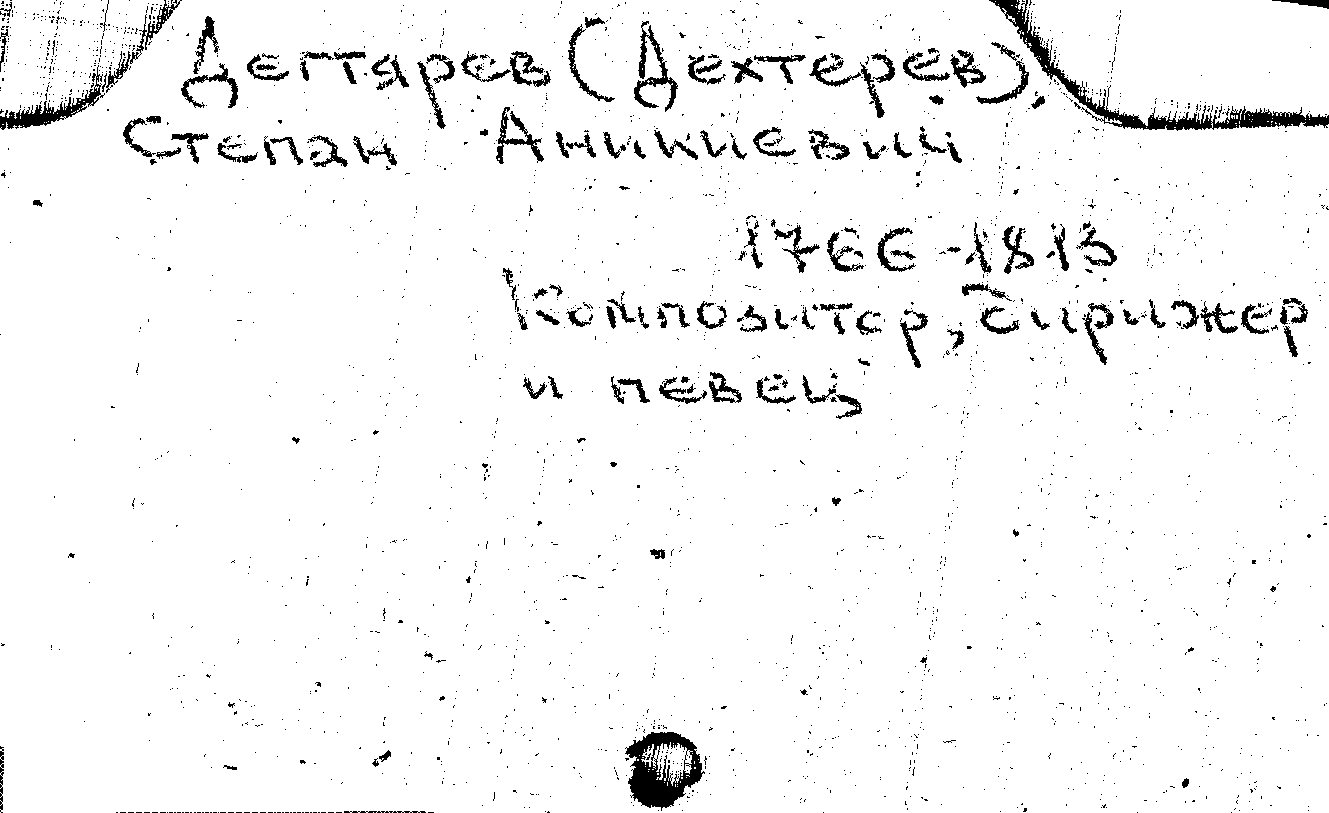 Дегтярев (Дехтерев),
Степан Аникиевич
1766-1813
Композитор, дирижер
и певец